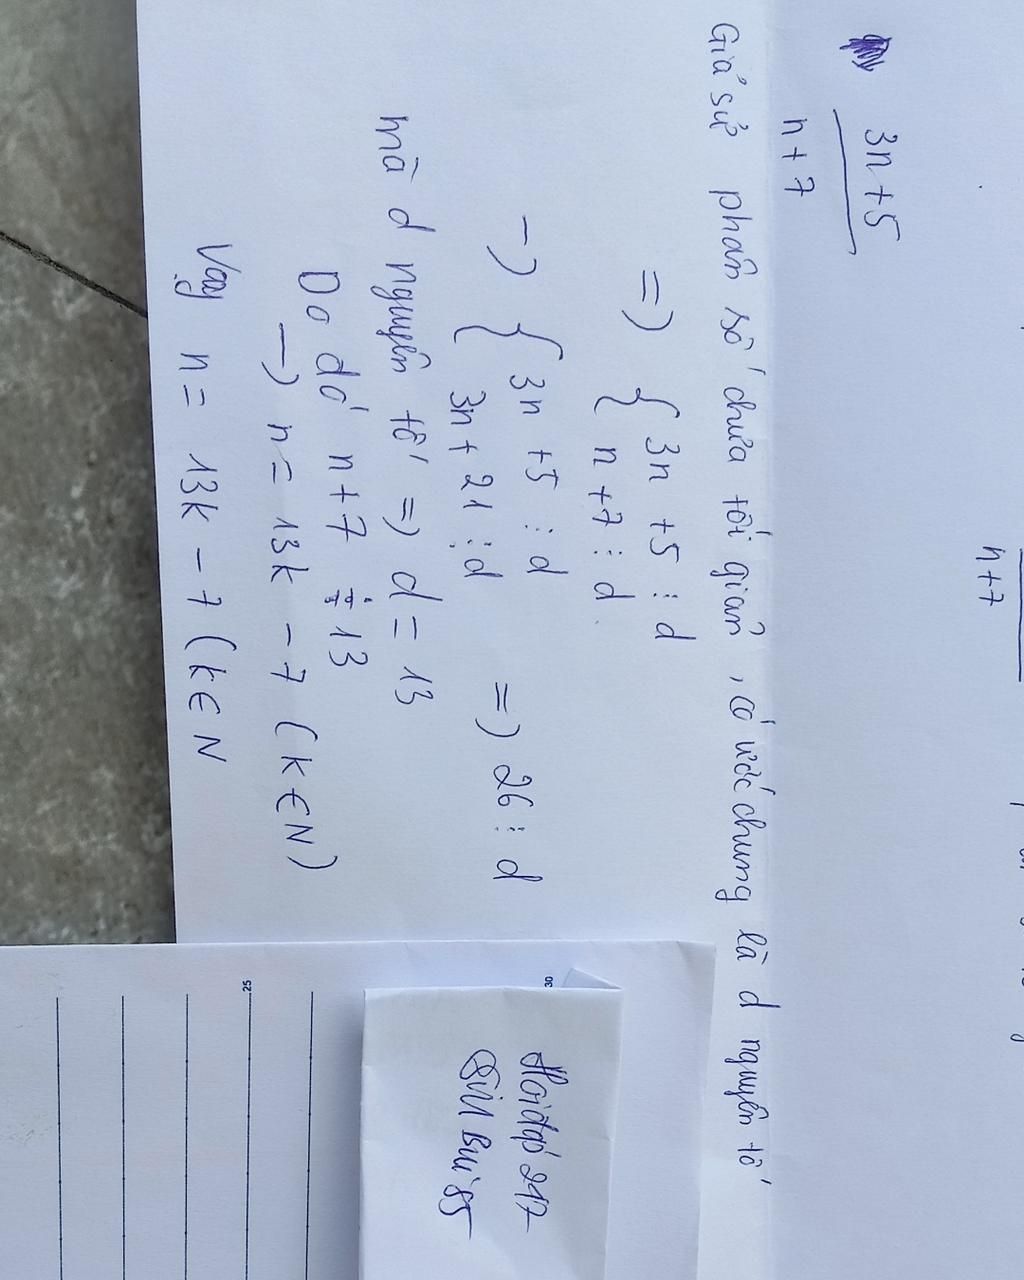 3n+5
n+7
Giả sử phân số chưa tối giản, có ước chung là d nguyên tố
=> { 3n +5 ⋮ d
n +7 ⋮ d
→ { 3n +5 ⋮ d
3n + 21 ⋮ d => 26 ⋮ d
mà d nguyên tố => d = 13
Do đó n+7 ⋮ 13
→ n = 13k - 7 (k ∈ N)
Vậy n = 13k - 7 (k ∈ N
n+7
Hoidap 247
25
30